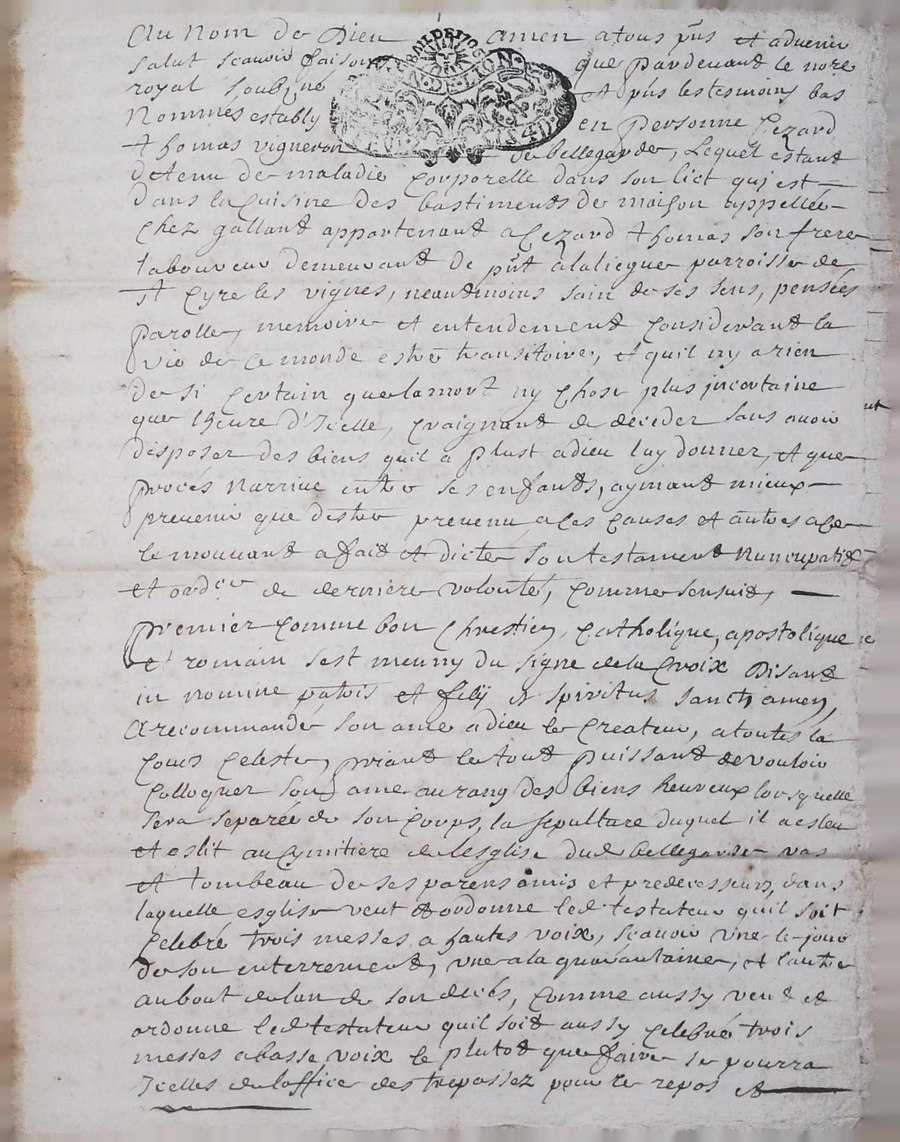 Au Nom de Dieu amen atous pnts et advenir
salut scavoir faisons que pardevant le nore
royal soubzigné et pnts les tesmoins bas
Nommes estably en personne Cezard
thomas vigneron de bellegarde, Lequel estant
detenu de maladie Corporelle dans son lict qui est
dans la Cuisine des bastiments de maison appellée
Chez galland appartenant a Cezard thomas son frere
laboureur demeurant de pnt alaliegue parroisse de
st Cyre les vignes, neantmoins sain de ses sens, pensées
parolle, memoire et entendement Considerant la
vie de ce monde estre transitoire, et quil ny a rien
de si Certain que lamort ny Chose plus jncertaine
que lheure d'Jcelle, Craignant de deceder sans avoir
disposer des biens quil a plust adieu luy donner, et que
procés Narrive entre ses enfants, aymant mieux
prevenir que destre prevenu a ces Causes et autres ace
le mouvant a fait et dicté son testament Nuncupatif
et ordce de derniere volonté, Comme sensuit,
premier Comme bon Chrestien, Catholique, apostolique
et romain sest meuny du signe de la Croix Disant
in nomine patris et filij et spiritus sancti amen,
a recommande son ame adieu le Createur, atoutes la
Cours Celeste, priant le tout puissant de vouloir
Colloquer son ame au rang des biens heureux lors quelle
sera separée de son Corps, la sepulture duquel il a esleu
et eslit au Cymitiere de lesglise dud bellegarde vas
et tombeau de ses parens amis et predecesseurs, dans
laquelle esglise veut et ordonne led testateur quil soit
Celebré trois messes a hautes voix, scavoir vne le jour
de son enterrement, vne a la quarantaine, et lautre
au bout de lan de son decés, Comme aussy veut et
ordonne led testateur quil soit aussy Celebré trois
messes abasse voix le plutot que faire se pourra
Jcelles de loffice des trepassez pour le repos et